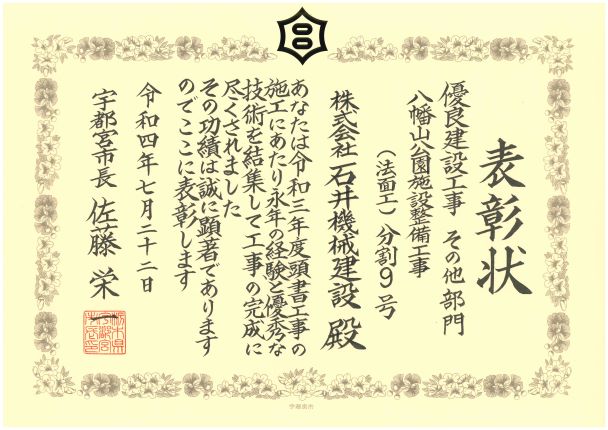 表彰状
優良建設工事 その他部門
八幡山公園施設整備工事
(法面工)分割9号
株式会社石井機械建設 殿
あなたは令和三年度頭書工事の
施工にあたり永年の経験と優秀な
技術を結集して工事の完成に
尽くされました
その功績は誠に顕著であります
のでここに表彰します
令和四年七月二十二日
宇都宮市長 佐藤栄一